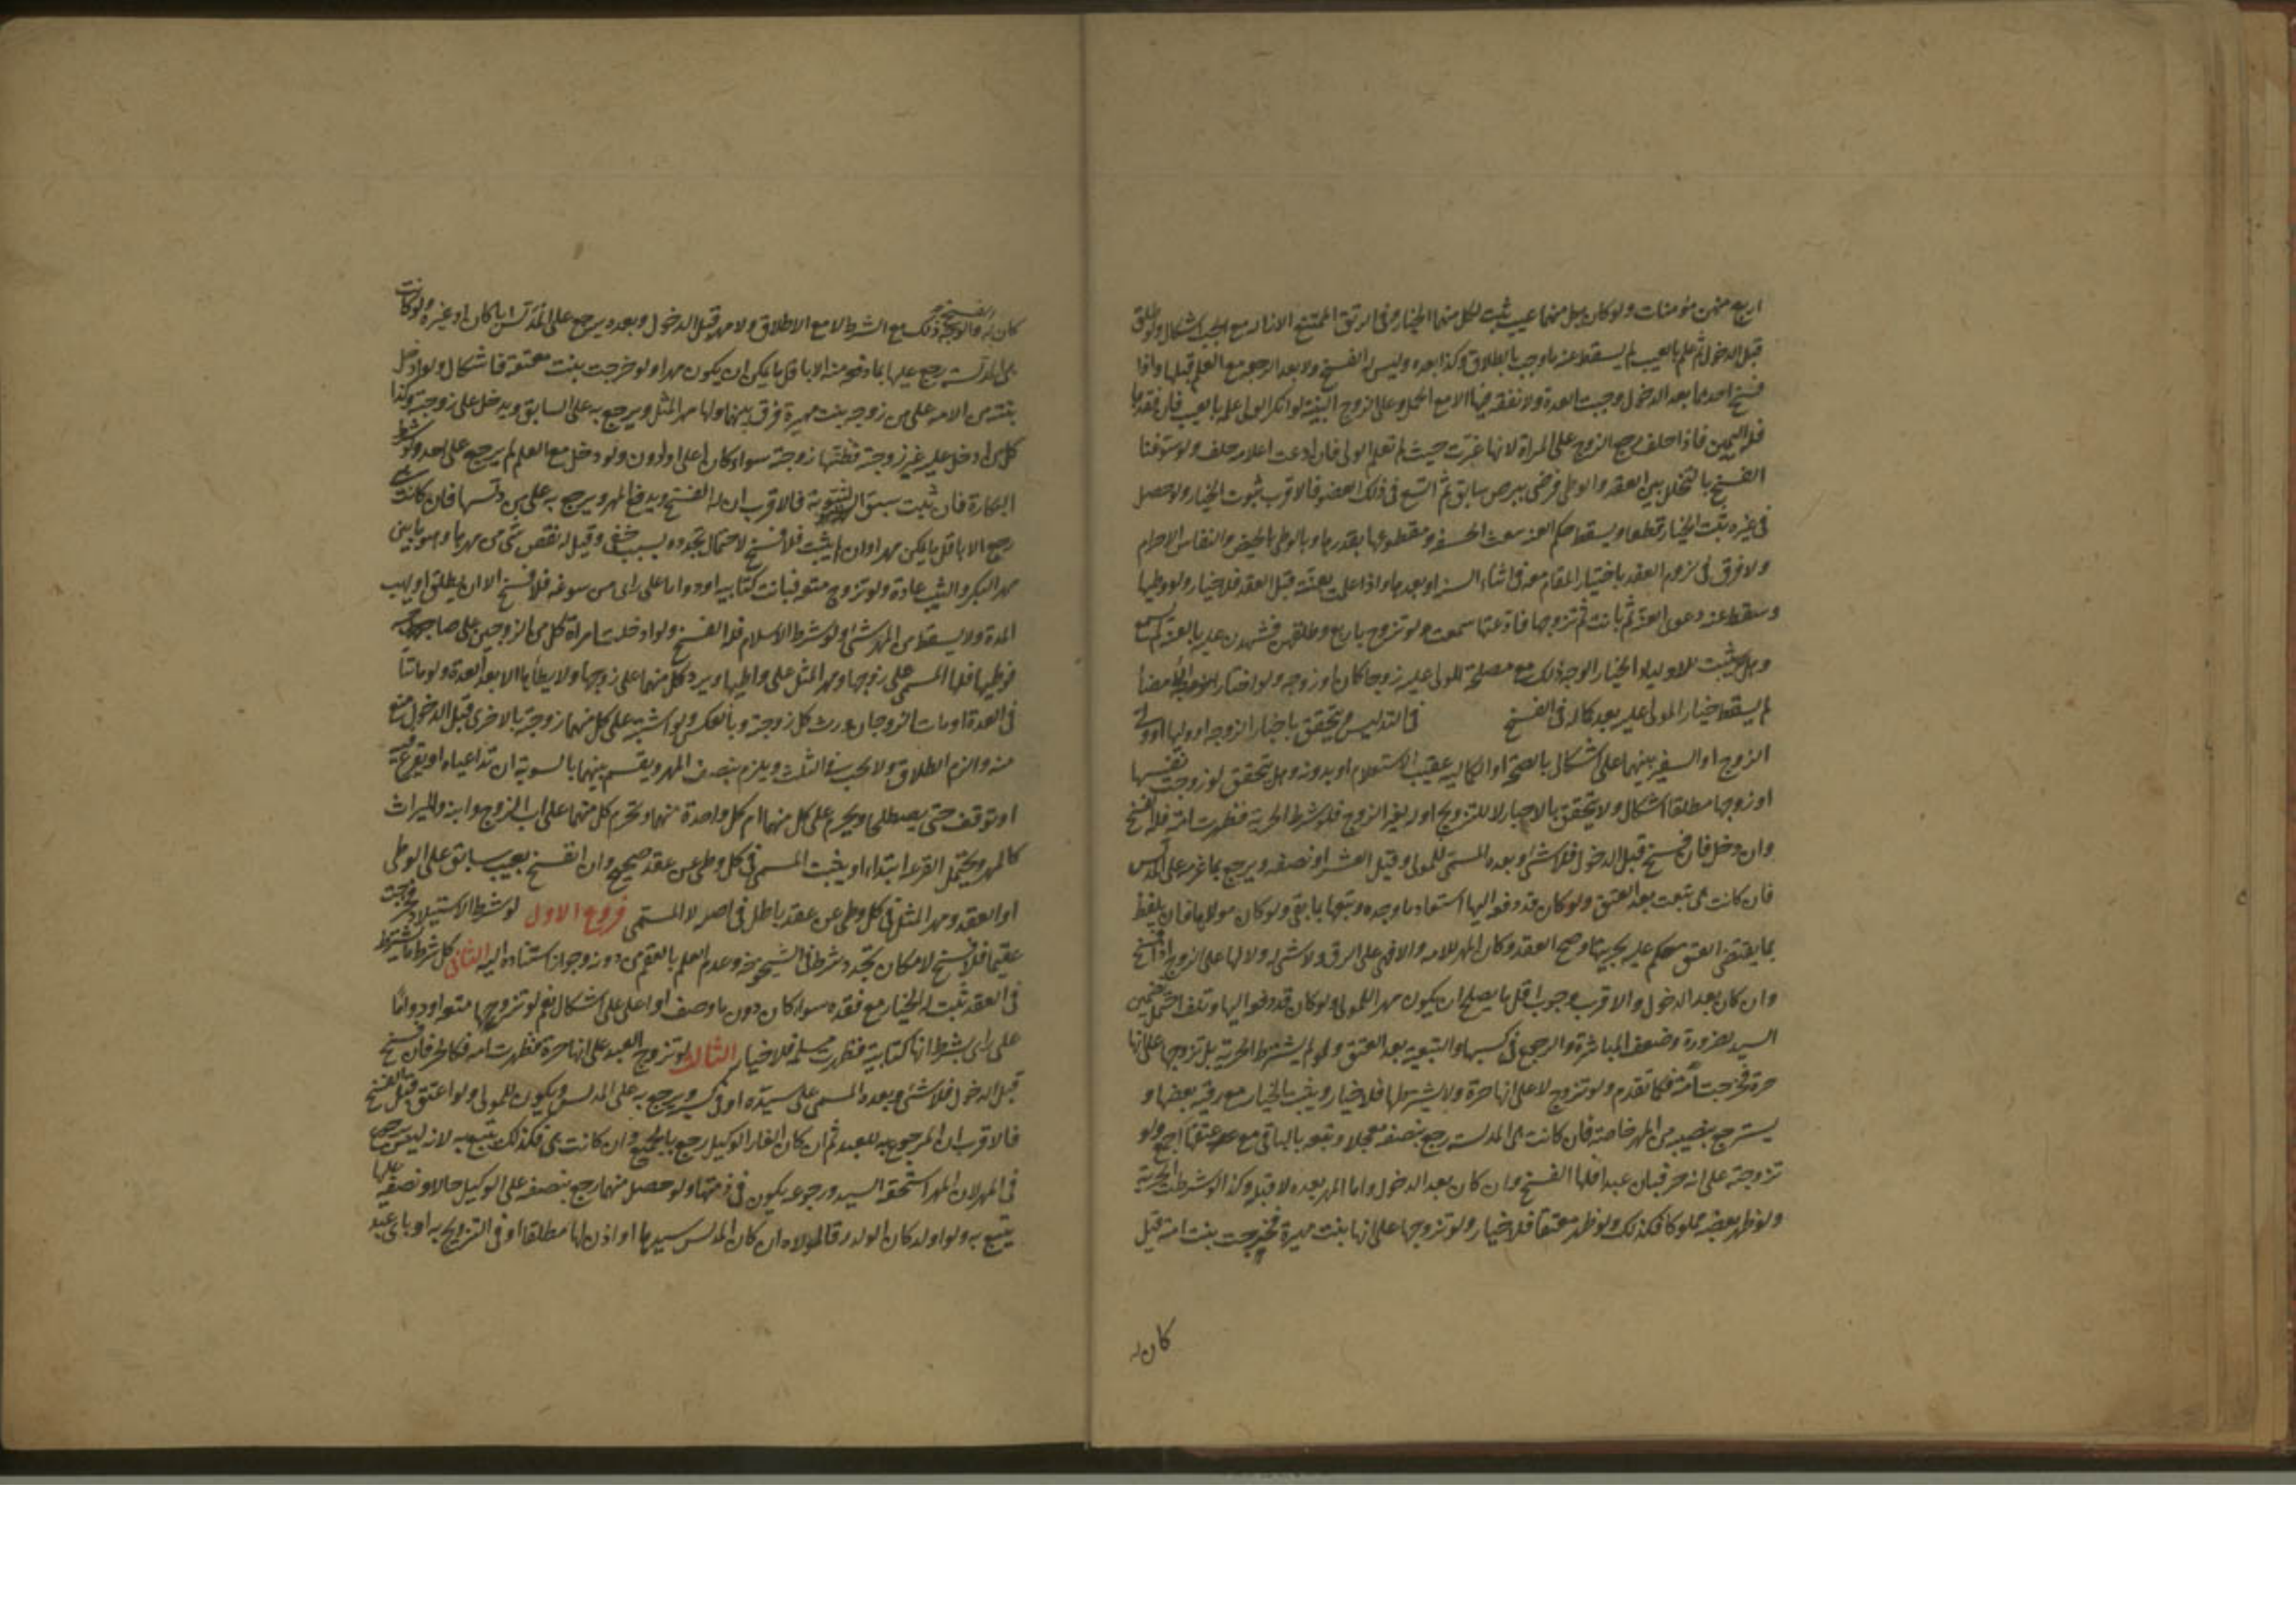 اربع منهن مؤمنات ولو كان بكل منهما عيب ثبت لكل منهما الخيار وفى الرتق الممتنع الازاله مع الجب اشكال ولو طلق
قبل الدخول ثم علم بالعيب لم يسقط عنه ما وجب بالطلاق وكذا بعده وليس له الفسخ ولا بعد الرجوع مع العلم قبلها واذا
فسخ احدهما بعد الدخول وجبت العدة ولا نفقه فيها الا مع الحمل وعلى الزوج البينة لو انكر الولى علمه بالعيب فان فقدها
فله اليمين فاذا حلف رجع الزوج على المراة لانها غرت حيث لم تعلم الولى فان ادعت اعلامه حلف ولو سوغنا
الفسخ بالتخلل بين العقد والوطى فرضى ببرص سابق ثم اتسع فى ذلك العضو فالاقرب ثبوت الخيار ولو حصل
فى غيره ثبت الخيار قطعا ويسقط حكم العنه بتغيب الحشفه ومقطوعها بقدرها وبالوطى بالحيض والنفاس والاحرام
ولا فرق فى لزوم العقد باختيار المقام معه فى اثناء السنه او بعدها واذا علمت بعننه قبل العقد فلا خيار ولو وطيها
وسقط عنه دعوى العنه ثم بانت ثم تزوجها فادعتها سمعت ولو تزوج باربع وطلقهن فشهدن عليه بالعنه لم تسمع
وهل يثبت للاولياء الخيار الوجه ذلك مع مصلحة المولى عليه زوجا كان او زوجه ولو اختار امضاء
لم يسقط خيار المولى عليه بعد كماله فى الفسخ فى التدليس ويتحقق باخبار الزوجه او وليها او ولى
الزوج او السفير بينهما على اشكال بالصحة او الكماليه عقيب الاستعلام او بدونه وهل تحقق لو زوجت نفسها
او زوجها مطلقا اشكال ولا يتحقق بالاخبار لا للتزويج او لغير الزوج فلو شرط الحرية فظهرت امة فله الفسخ
وان دخل فان فسخ قبل الدخول فلا شئ وبعده المسمى للمولى وقيل العشر او نصفه ويرجع بما غرمه على المدلس
فان كانت هى تبعت بعد العتق ولو كان قد دفعه اليها استعاد ما وجده وتبعها بما بقى ولو كان مولاها فان تلفظ
بما يقتضى العتق حكم عليه بحريتها وصح العقد وكان المهر للامه والا فهى على الرق ولا شئ له ولا لها على الزوج اذا فسخ
وان كان بعد الدخول والاقرب وجوب اقل ما يصلح ان يكون مهرا للمولى ولو كان قد دفعه اليها وتلف احتمل تضمين
السيد لغروره وضعف المباشرة والرجوع فى كسبها والتبعية بعد العتق ولو لم يشترط الحرية بل تزوجها على انها
حرة فخرجت امة فكما تقدم ولو تزوج لا على انها حرة ولا شرطها فلا خيار ويثبت الخيار مع رقية بعضها و
يسترجع بنصيبه من المهر خاصة فان كانت هى المدلسه رجع بنصفه معجلا وتبعه بالباقى مع عتقها اجمع ولو
تزوجته على انه حر فبان عبدا فلها الفسخ وان كان بعد الدخول ولها المهر بعده لا قبله وكذا لو شرطت الحرية
ولو ظهر بعضه مملوكا فكذلك ولو ظهر معتقا فلا خيار ولو تزوجها على انها بنت مهيرة فخرجت بنت امة قيل
كان له
كان له الفسخ والوجه ذلك مع الشرط لا مع الاطلاق ولا مهر قبل الدخول وبعده يرجع على المدلس ابا كان او غيره ولو كانت
هى المدلسه رجع عليها بما دفعه منه الا باقل ما يمكن ان يكون مهرا ولو خرجت بنت معتقة فاشكال ولو ادخل
بنته من الامه على من زوجه بنت مهيرة فرق بينهما ولها مهر المثل ويرجع به على السابق ويدخل على زوجته وكذا
كل من ادخل عليه غير زوجته فظنها زوجته سواء كان اعلى او ادون ولو دخل مع العلم لم يرجع على احد ولو شرط
البكارة فان ثبت سبق الثيوبة فالاقرب ان له الفسخ ويدفع المهر ويرجع به على من دلسها فان كانت هى
رجع الا باقل ما يمكن مهرا وان لم يثبت فلا فسخ لاحتمال تجدده بسبب خفى وقيل له نقص شئ من مهرها وهو ما بين
مهر البكر والثيب عادة ولو تزوج متعه فبانت كتابيه او دواما على راى من سوغه فلا فسخ الا ان يطلق او يهب
المدة ولا يسقط من المهر شئ ولو شرط الاسلام فله الفسخ ولو ادخلت امراة كل من الزوجين على صاحبه
فوطيها فلها المسمى على زوجها ومهر المثل على واطيها ويرد كل منهما على زوجها ولا يطأها الا بعد العدة ولو ماتتا
فى العدة او مات الزوجان ورث كل زوجته وبالعكس ولو اشتبه على كل منهما زوجته بالاخرى قبل الدخول منع
منه والزم الطلاق ولا يحسب فى الثلث ويلزم بنصف المهر ويقسم بينهما بالسوية ان تداعياه او يقرع فيه
او توقف حتى يصطلحا ويحرم على كل منهما ام كل واحدة منهما وتحرم كل منهما على اب الزوج وابنه والميراث
كالمهر ويحتمل القرعه ابتداء ويثبت المسمى فى كل وطى عن عقد صحيح وان انفسخ بعيب سابق على الوطى
او العقد ومهر المثل فى كل وطى عن عقد باطل فى اصله لا المسمى فروع الاول لو شرط الاستيلاد فخرجت
عقيما فلا فسخ لامكان تجدد شرطه فى الشيخوخة وعدم العلم بالعقم من دونه وجواز استناده اليه الثانى كل شرط يشترطه
فى العقد ثبت له الخيار مع فقده سواء كان دون ما وصف او اعلى على اشكال نعم لو تزوجها متعه او دواما
على راى بشرط انها كتابية فظهرت مسلمه فلا خيار الثالث لو تزوج العبد على انها حرة فظهرت امه فكالحر فان فسخ
قبل الدخول فلا شئ وبعده المسمى على سيده او فى كسبه ويرجع به على المدلس ويكون للمولى ولو اعتق قبل الفسخ
فالاقرب ان المرجوع به للعبد ثم ان كان الغار الوكيل رجع بالجميع وان كانت هى فكذلك يتبع به لانه ليس برجوع
فى المهر لان المهر استحقه السيد ورجوعه يكون فى ذمتها ولو حصل منهما رجع بنصفه على الوكيل حالا ونصفه عليها
يتبع به ولو اولد كان الولد رقا لمولاه ان كان المدلس سيدها او اذن لها مطلقا او فى التزويج به او باى عبد